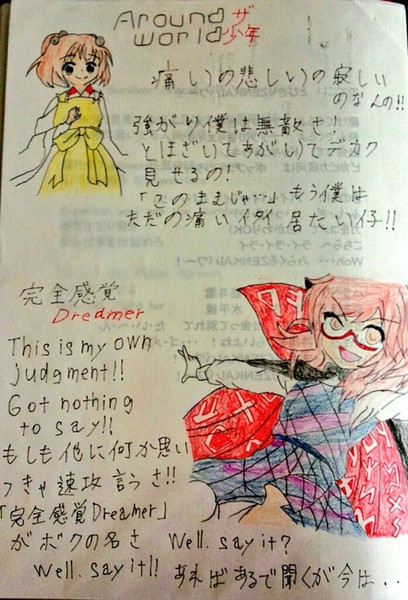 Around ザ
world 少年
痛いの悲しいの寂しい
のなんの!!
強がり僕は無敵さ!
とほざいてあがいてデカク
見せるの!
「このままじゃ…」もう僕は
ただの痛いイタイ居たい仔!!
完全感覚
Dreamer
This is my own
judgment!!
Got nothing
to say!!
もしも他に何か思い
つきゃ速攻言うさ!!
「完全感覚Dreamer」
がボクの名さ Well, say it?
Well, say it!! あればあるで聞くが今は..